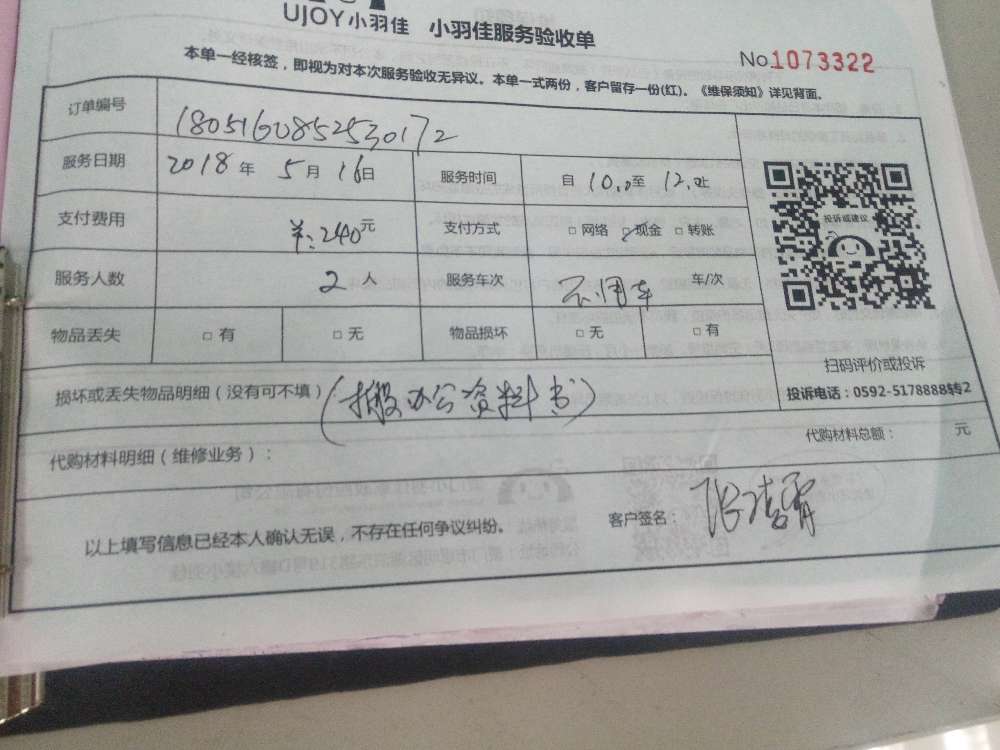 UJOY小羽佳 小羽佳服务验收单
No 1073322
本单一经核签，即视为对本次服务验收无异议。本单一式两份，客户留存一份(红)。《维保须知》详见背面。
订单编号 1805160852530172
服务日期 2018年 5月 16日 服务时间 自 10.0至 12.0止
支付费用 ¥:240元 支付方式 □网络 ☑现金 □转账
投诉或建议
服务人数 2人 服务车次 不用车 车/次
物品丢失 □有 □无 物品损坏 □无 □有
扫码评价或投诉
投诉电话：0592-5178888转2
损坏或丢失物品明细（没有可不填）： (搬办公资料书)
代购材料明细（维修业务）： 代购材料总额： 元
以上填写信息已经本人确认无误，不存在任何争议纠纷。 客户签名：